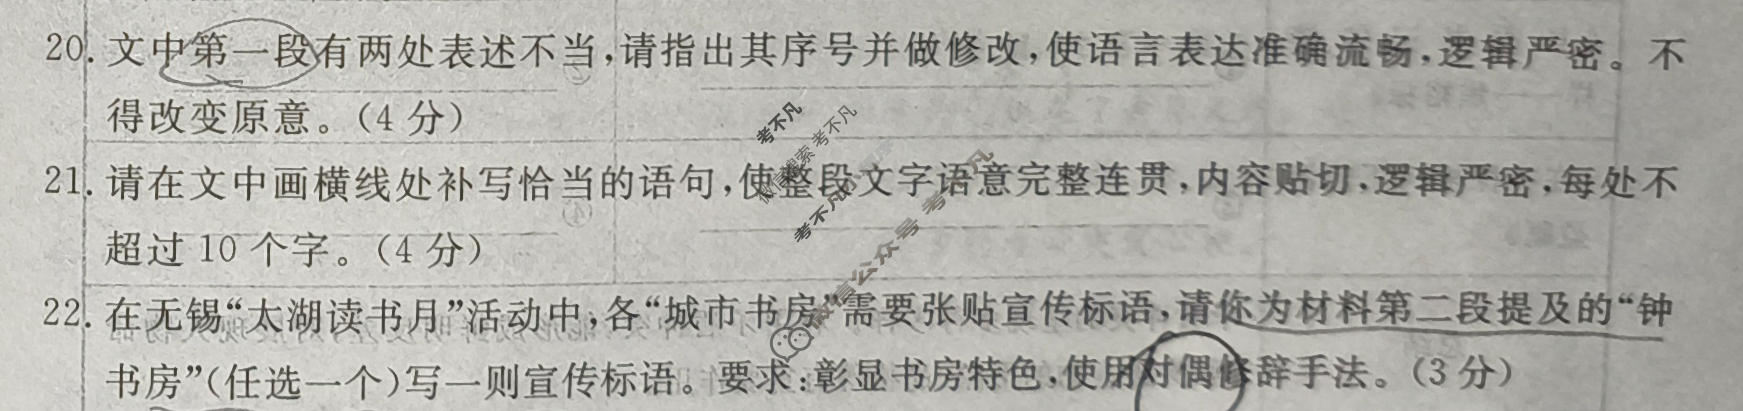 20. 文中第一段有两处表述不当,请指出其序号并做修改,使语言表达准确流畅,逻辑严密。不
得改变原意。(4分)
21. 请在文中画横线处补写恰当的语句,使整段文字语意完整连贯,内容贴切,逻辑严密,每处不
超过10个字。(4分)
22. 在无锡“太湖读书月”活动中,各“城市书房”需要张贴宣传标语,请你为材料第二段提及的“钟
书房”(任选一个)写一则宣传标语。要求:彰显书房特色,使用对偶修辞手法。(3分)
考不凡
微信搜索 考不凡
考不凡
微信公众号 考不凡